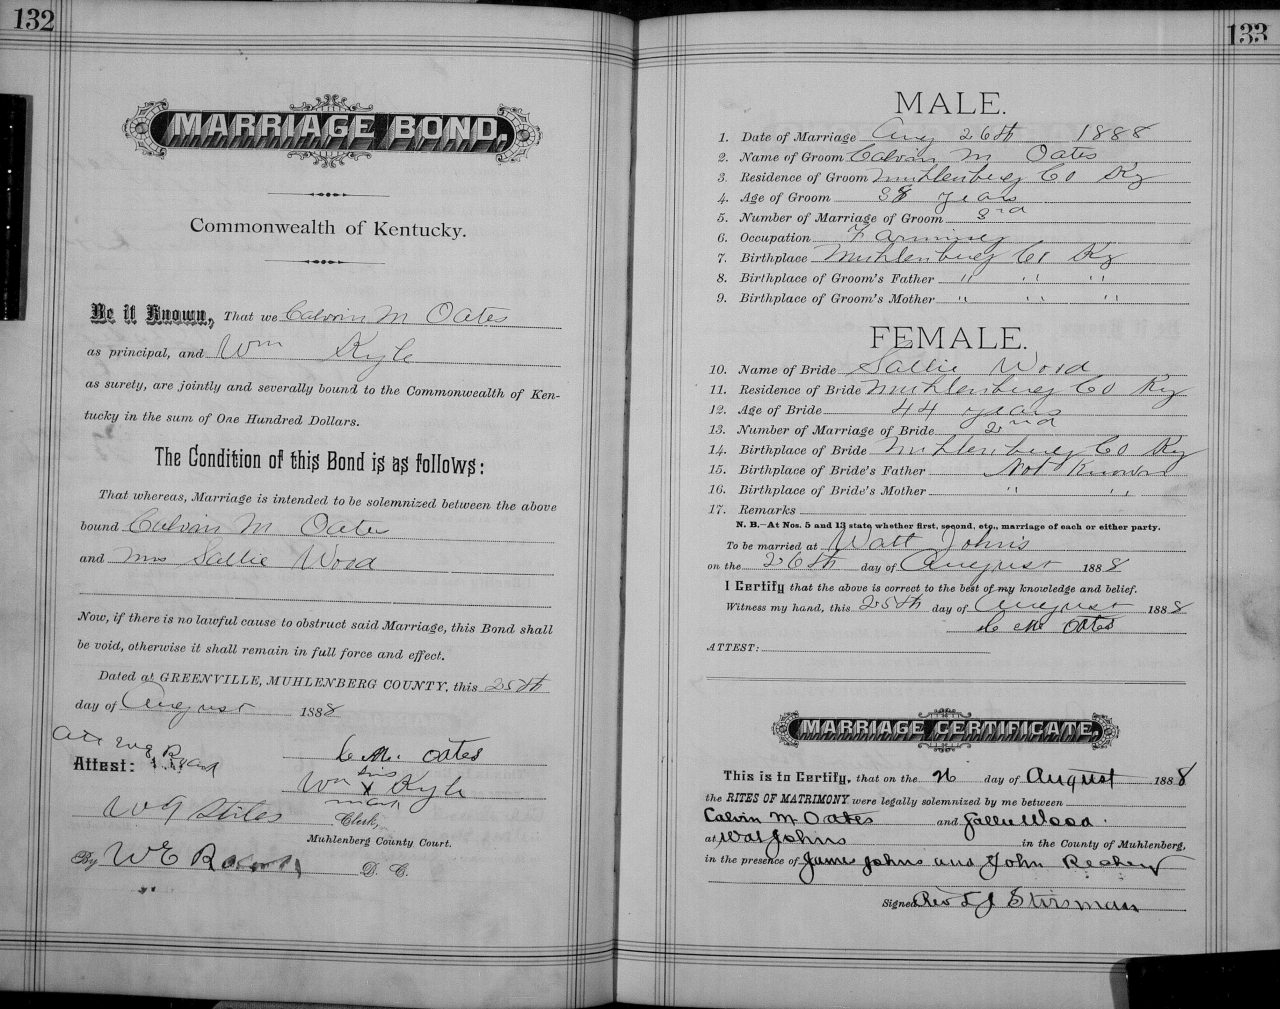 132
MARRIAGE BOND.
Commonwealth of Kentucky.
Be it Known, That we Calvin M Oates
as principal, and Wm Kyle
as surety, are jointly and severally bound to the Commonwealth of Ken-
tucky in the sum of One Hundred Dollars.
The Condition of this Bond is as follows:
That whereas, Marriage is intended to be solemnized between the above
bound Calvin M Oates
and Mrs Sallie Wood
Now, if there is no lawful cause to obstruct said Marriage, this Bond shall
be void, otherwise it shall remain in full force and effect.
Dated at GREENVILLE, MUHLENBERG COUNTY, this 25th
day of August 1888
C. M. Oates
Attest:
Wm his x mark Kyle
Stiles
Clerk,
Muhlenberg County Court.
By W E D. C.
133
MALE.
1. Date of Marriage Aug 26th 1888
2. Name of Groom Calvin M Oates
3. Residence of Groom Muhlenberg Co Ky
4. Age of Groom 38 years
5. Number of Marriage of Groom 3rd
6. Occupation Farming
7. Birthplace Muhlenberg Co Ky
8. Birthplace of Groom's Father " " "
9. Birthplace of Groom's Mother " " "
FEMALE.
10. Name of Bride Sallie Wood
11. Residence of Bride Muhlenberg Co Ky
12. Age of Bride 44 years
13. Number of Marriage of Bride 2nd
14. Birthplace of Bride Muhlenberg Co Ky
15. Birthplace of Bride's Father Not Known
16. Birthplace of Bride's Mother " "
17. Remarks
N. B.—At Nos. 5 and 13 state whether first, second, etc., marriage of each or either party.
To be married at Watt Johns
on the 26th day of August 1888
I Certify that the above is correct to the best of my knowledge and belief.
Witness my hand, this 25th day of August 1888
C M Oates
ATTEST:
MARRIAGE CERTIFICATE.
This is to Certify, that on the 26 day of August 1888
the RITES OF MATRIMONY were legally solemnized by me between
Calvin M Oates and Sallie Wood.
at Wat Johns in the County of Muhlenberg,
in the presence of James Johns and John
Signed Rev